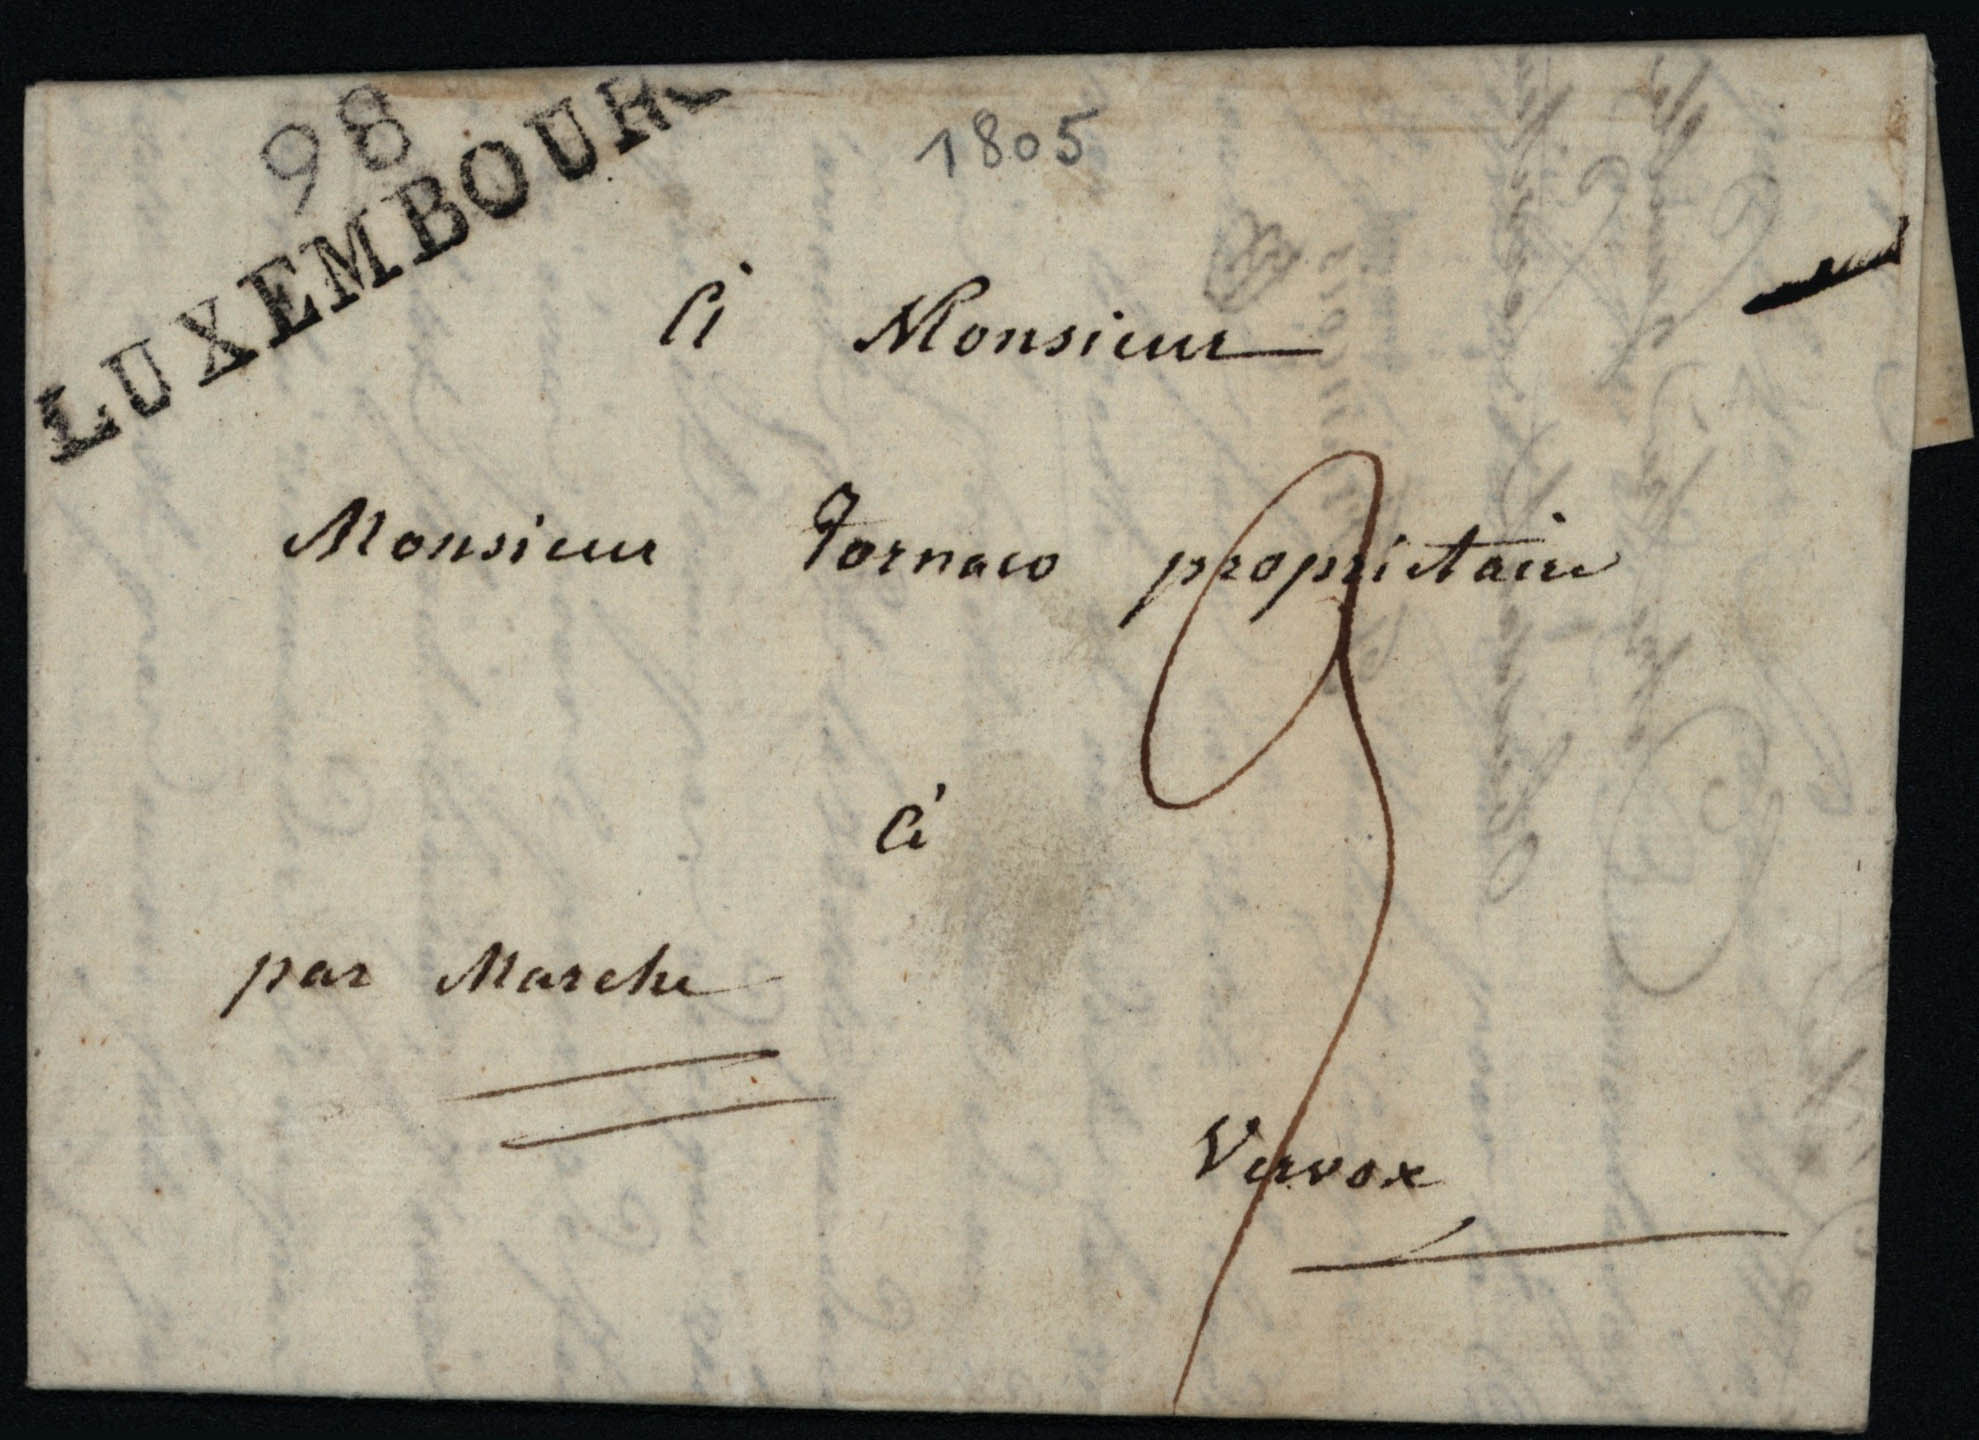 98
LUXEMBOUR
1805
A Monsieur
Monsieur Tornaco propriétaire
à
par Marche
Vervox